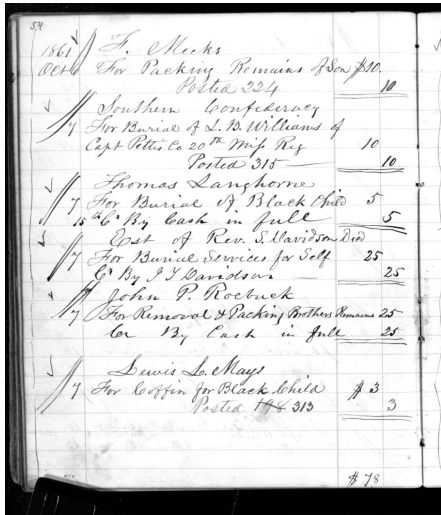 54
1861 F. Meeks
Oct 6 For Packing Remains of Son $10
Posted 224 10
Southern Confederacy
7 For Burial of L. B. Williams of
Capt Potter Co 20th Miss Reg 10
Posted 315 10
Thomas Langhorne
7 For Burial of Black Child 5
15 " Cr By Cash in full 5
Est of Rev. S. Davidson Died
7 For Burial Services for Self 25
Cr By J Davidson 25
John P. Roebuck
7 For Removal & Packing Brothers Remains 25
Cr By Cash in full 25
Lewis L. Mays
7 For Coffin for Black Child $ 3
Posted 313 3
$ 78